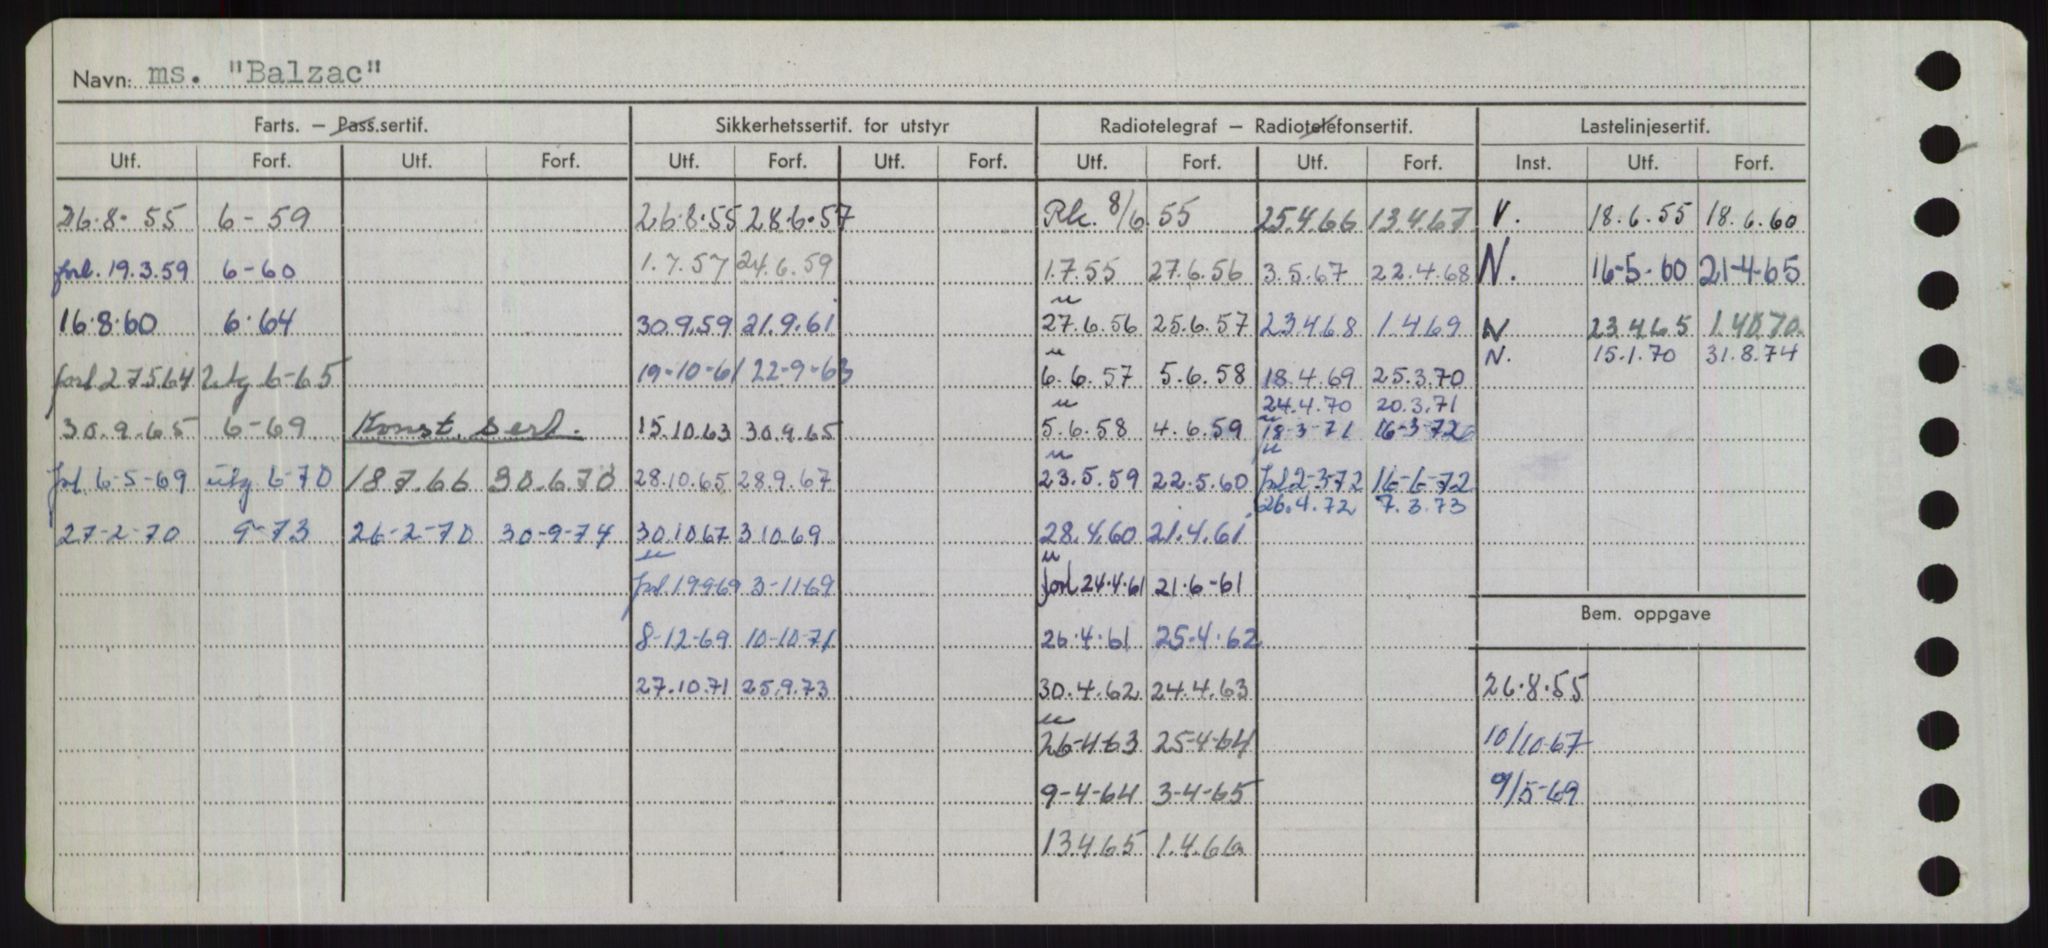 Navn: ms. "Balzac"
Farts. – Pass.sertif. Sikkerhetssertif. for utstyr Radiotelegraf – Radiotelefonsertif. Lastelinjesertif.
Utf. Forf. Utf. Forf. Utf. Forf. Utf. Forf. Utf. Forf. Utf. Forf. Inst. Utf. Forf.
26.8.55 6-59 26.8.55 28.6.57 Rk. 8/6.55 25.4.66 13.4.67 V. 18.6.55 18.6.60
forl. 19.3.59 6-60 1.7.57 24.6.59 1.7.55 27.6.56 3.5.67 22.4.68 N. 16-5-60 21-4-65
16.8.60 6.64 30.9.59 21.9.61 27.6.56 25.6.57 23.4.68 1.4.69 N 23.4.65
N. 15.1.70 31.8.74
forl 27.5.64 utg 6-65 19-10-61 22-9-63 6.6.57 5.6.58 18.4.69 25.3.70
24.4.70 20.3.71
30.9.65 6-69 Konst. Serl. 15.10.63 30.9.65 5.6.58 4.6.59 18-3-71 16-3-72
forl 6-5-69 utg 6-70 18.7.66 30.6.70 28.10.65 28.9.67 23.5.59 22.5.60 forl 2-3-72 16-6-72
26.4.72 7.3.73
27-2-70 9-73 26-2-70 30-9-74 30.10.67 3.10.69 28.4.60 21.4.61
forl 19-9-69 3-11-69 forl 24.4.61 21.6-61
8-12-69 10-10-71 26.4.61 25.4.62
27.10.71 25.9.73 30.4.62 24.4.63
26-4-63 25-4-64
9-4-64 3-4-65
13.4.65 1.4.66
Bem. oppgave
26.8.55
10/10-67
9/5-69